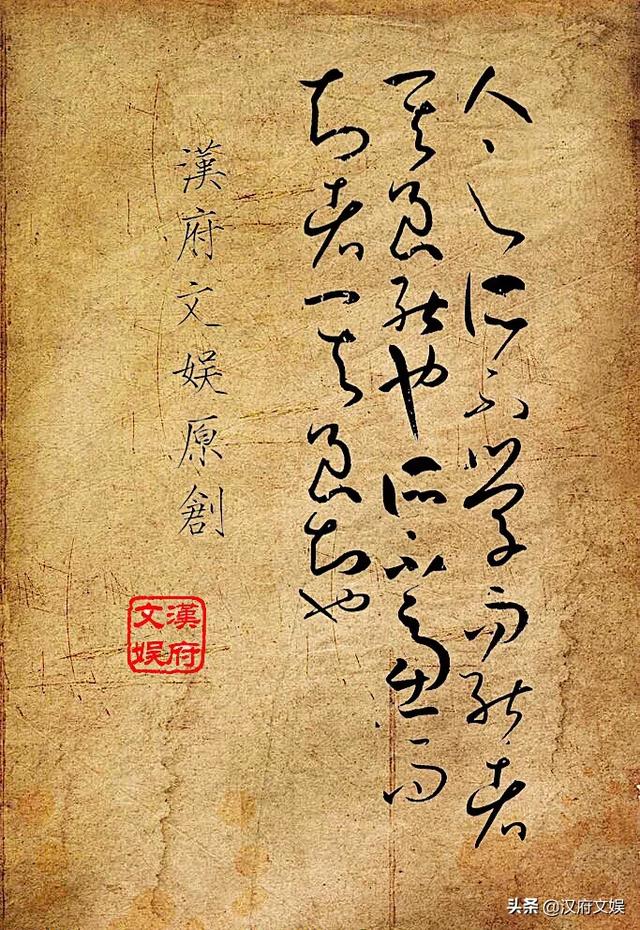 人之所不学而能者
其良能也所不慮而
知者其良知也
漢府文娱原創
漢府
文娱
头条 @汉府文娱